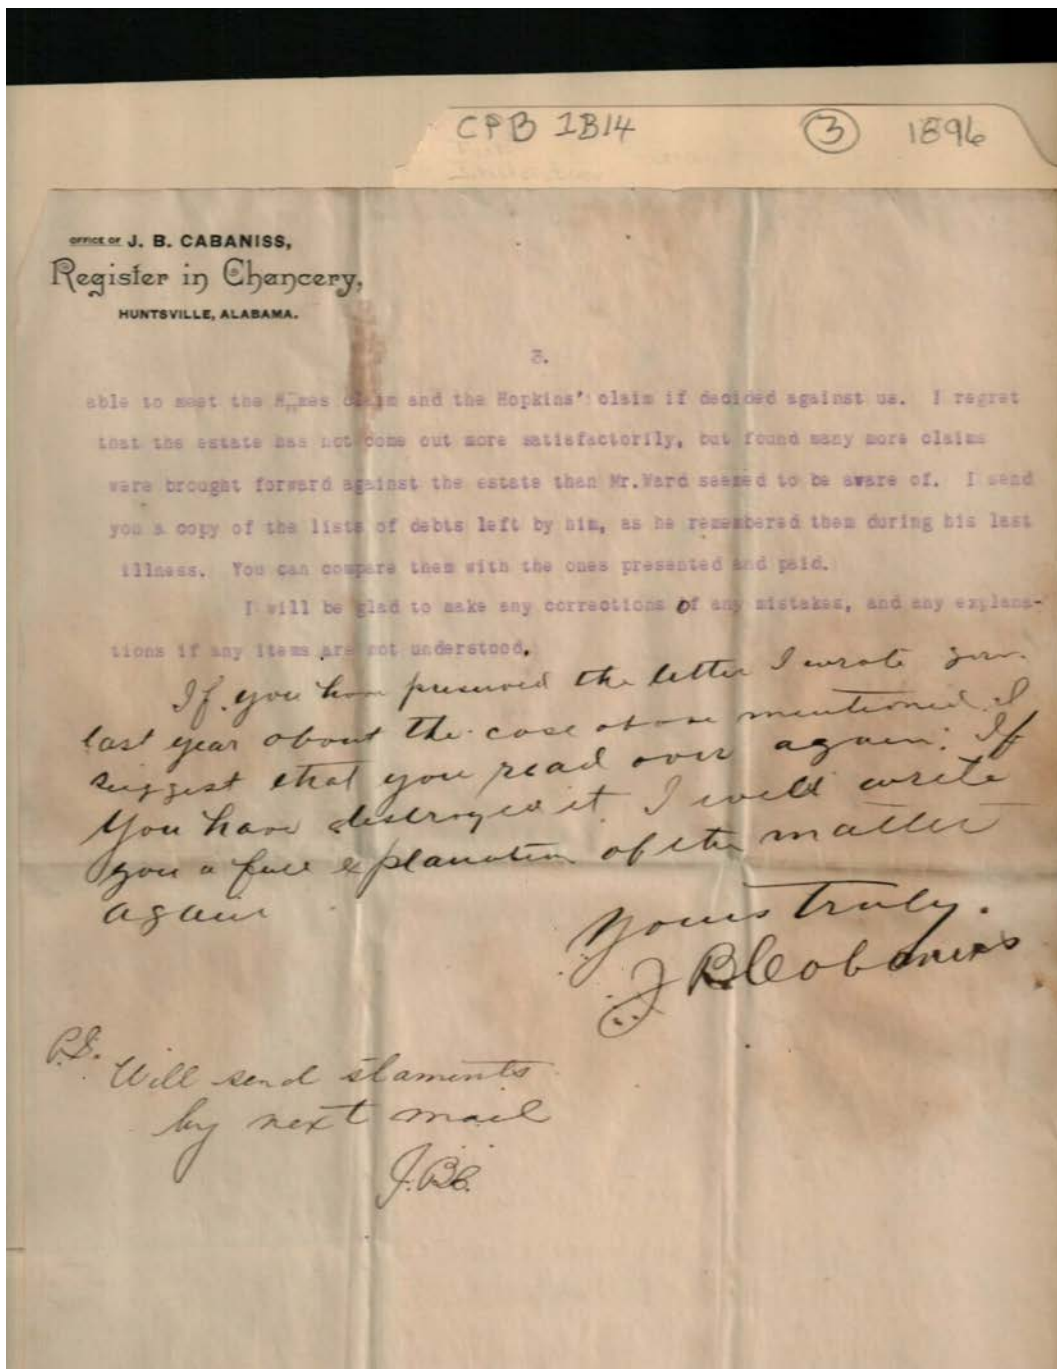 CPB 1B14 3 1896
OFFICE OF J. B. CABANISS,
Register in Chancery,
HUNTSVILLE, ALABAMA.
3.
able to meet the claim and the Hopkins' claim if decided against us. I regret
that the estate has not come out more satisfactorily, but found many more claims
were brought forward against the estate than Mr.Ward seemed to be aware of. I send
you a copy of the lists of debts left by him, as he remembered them during his last
illness. You can compare them with the ones presented and paid.
I will be glad to make any corrections of any mistakes, and any explana-
tions if any items are not understood.
If you have preserved the letter I wrote you
last year about the case above mentioned I
suggest that you read over again. If
You have destroyed it I will write
you a full explanation of the matter
again
Yours truly.
J B Cabaniss
P.S. Will send staments
by next mail
J.B.C.